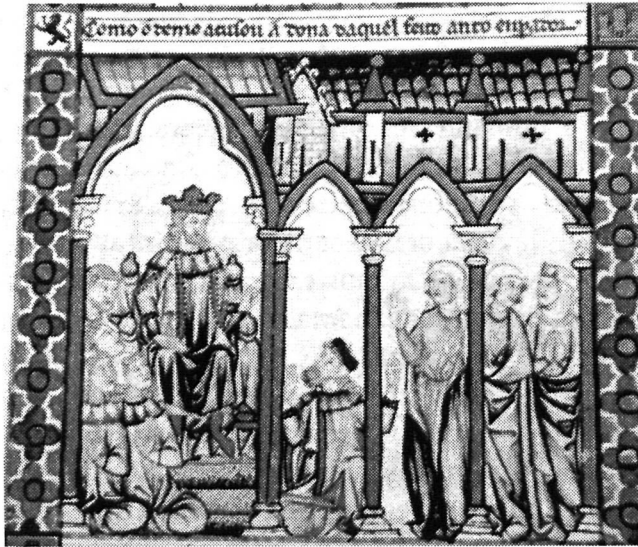 Como o demo acusou a dona daquel feito ante enperador